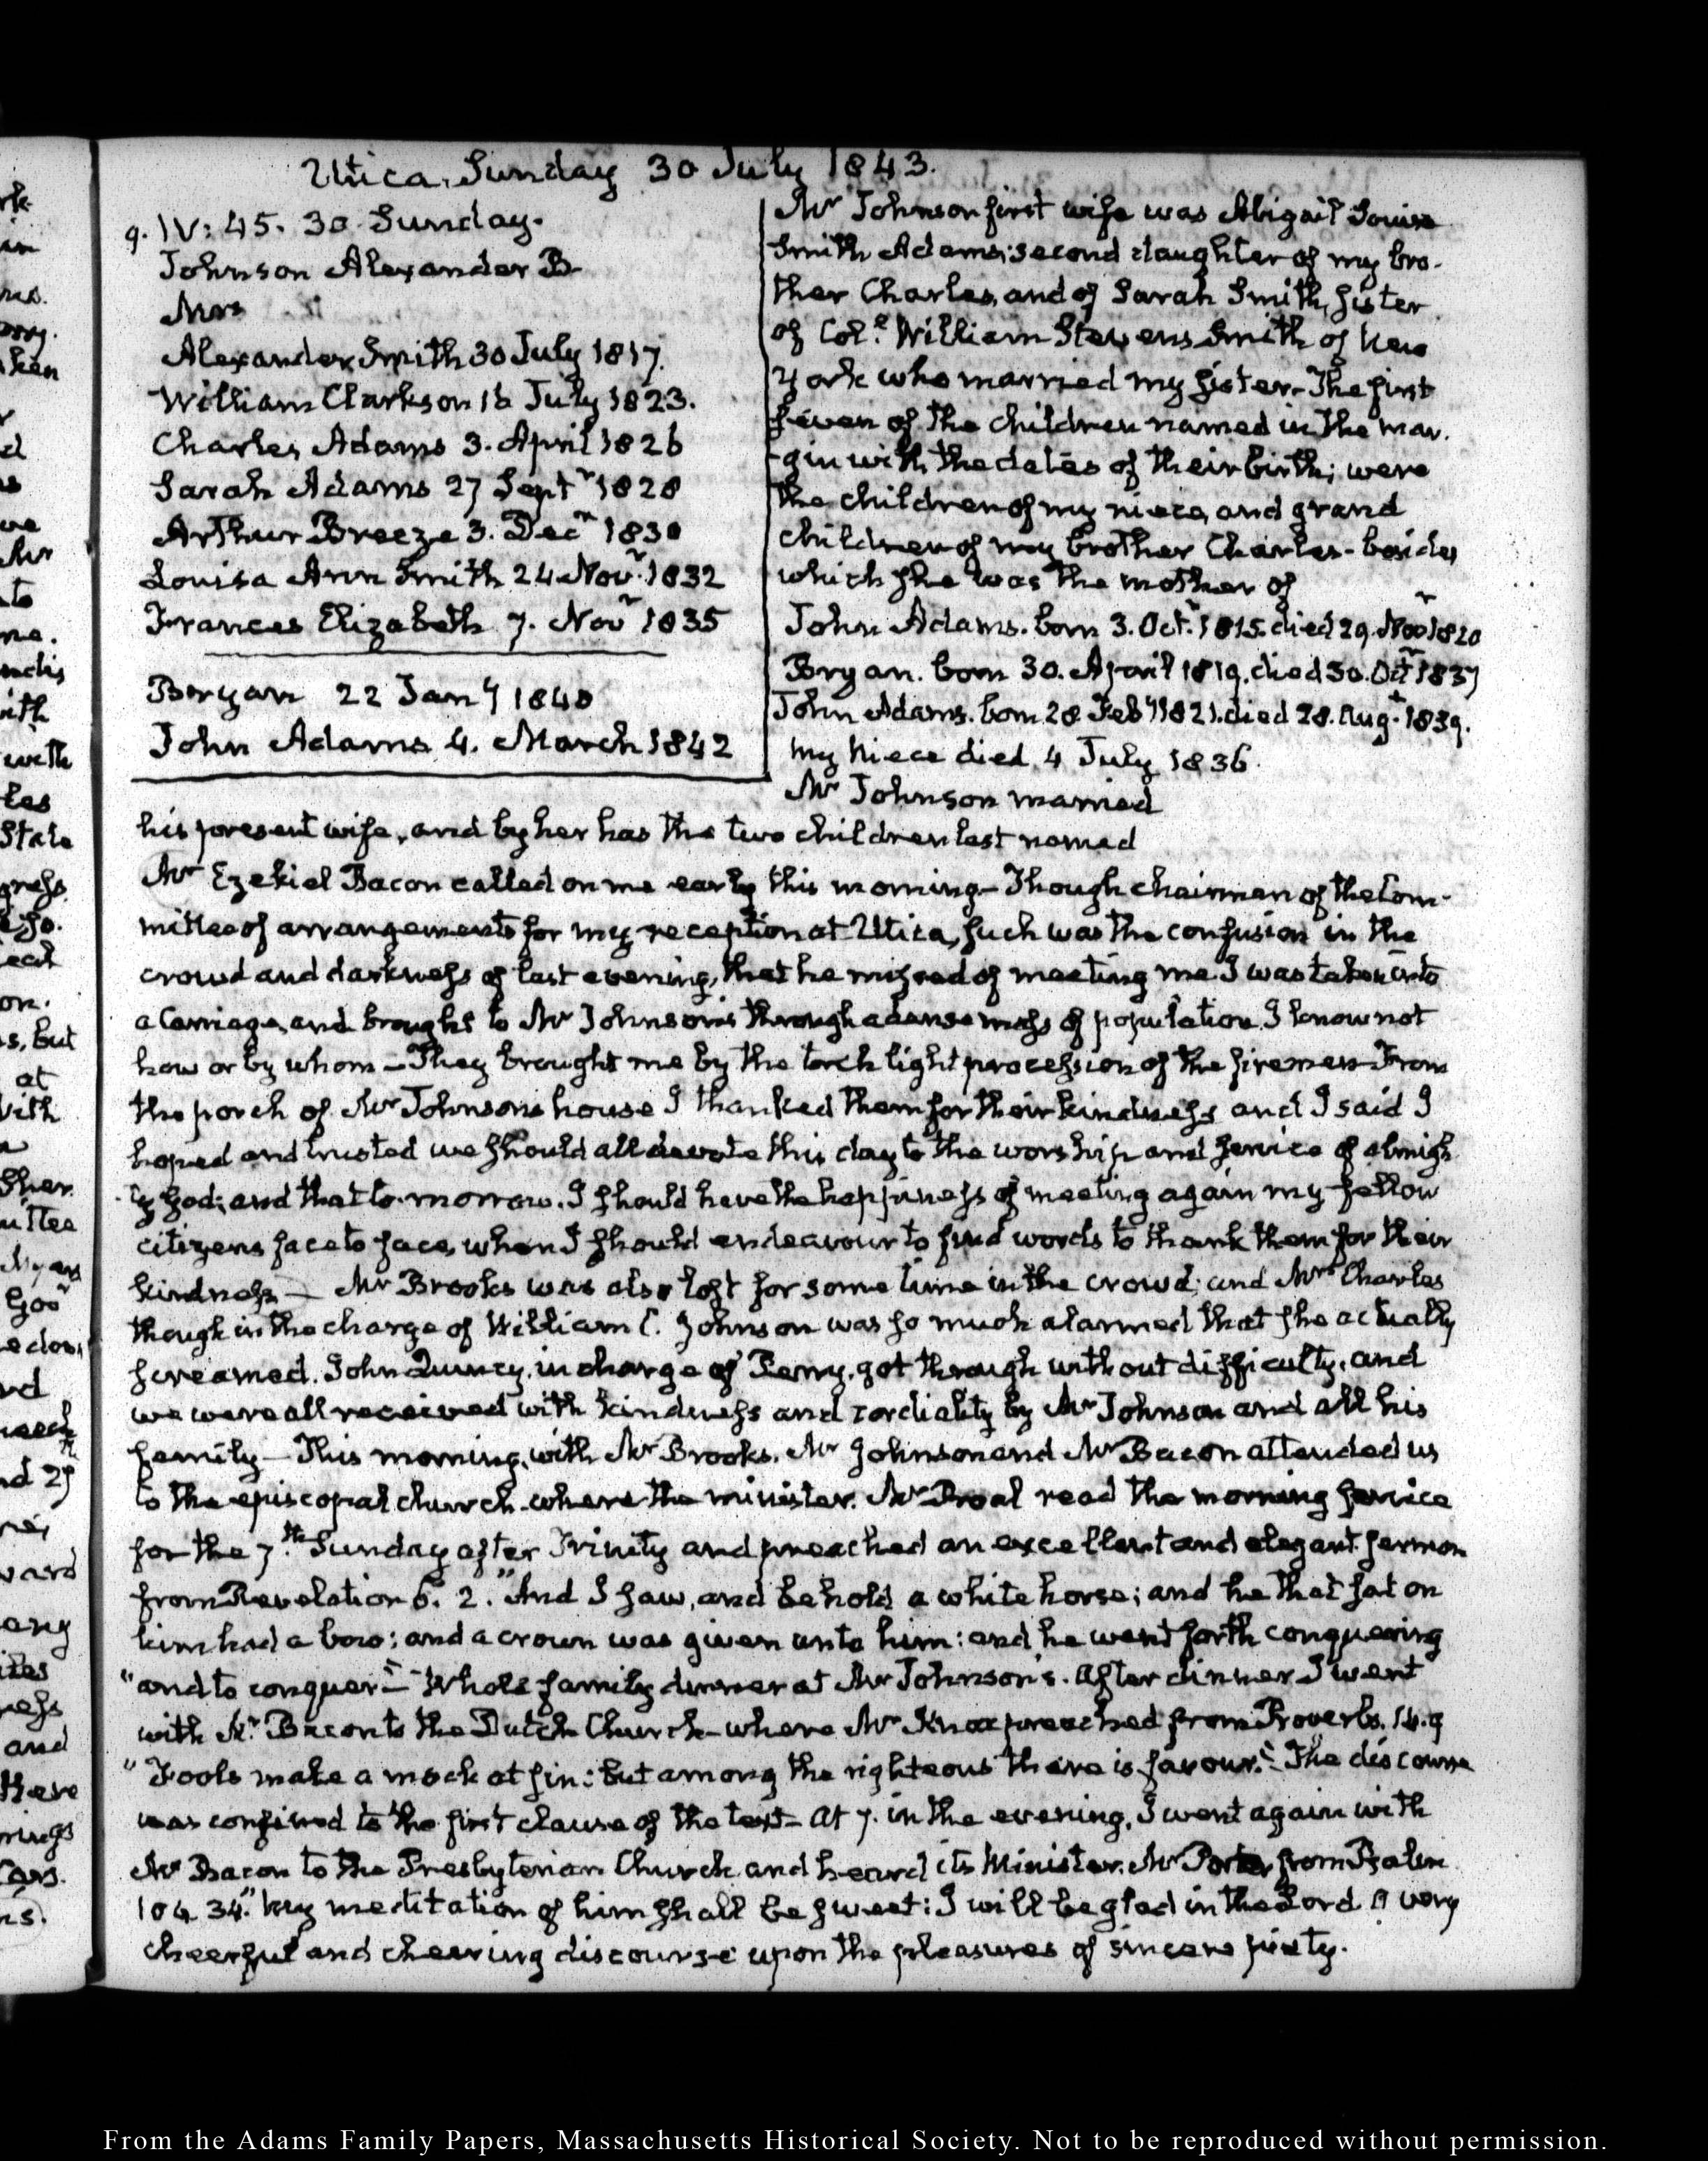 Utica, Sunday 30 July 1843.
9. IV: 45. 30. Sunday.
Johnson Alexander B
Mrs
Alexander Smith 30 July 1817.
William Clarkson 16 July 1823.
Charles Adams 3. April 1826
Sarah Adams 27 Septr 1828
Arthur Breeze 3. Decr 1830
Louisa Ann Smith 24 Novr. 1832
Frances Elizabeth 7. Novr 1835
Bryan 22 Jany 1840
John Adams 4. March 1842
Mr Johnson first wife was Abigail Louisa
Smith Adams; second daughter of my bro-
ther Charles, and of Sarah Smith, sister
of Coll. William Stevens Smith of New
York who married my sister. The first
seven of the children named in the mar-
gin with the dates of their birth; were
the children of my niece, and grand
children of my brother Charles - besides
which she was the mother of
John Adams. born 3. Octr. 1815. died 29. Novr 1820
Bryan. born 30. April 1819. died 30. Octr 1837
John Adams. born 28 Feby 1821. died 28. Augt. 1839.
My niece died 4 July 1836.
Mr Johnson married
his present wife, and by her has the two children last named
Mr Ezekiel Bacon called on me early this morning - Though chairman of the Com-
mittee of arrangements for my reception at Utica, such was the confusion in the
crowd and darkness of last evening, that he missed of meeting me. I was taken into
a Carriage, and brought to Mr Johnson's through a dense mass of population, I know not
how or by whom - They brought me by the torch light procession of the firemen - From
the porch of Mr Johnson's house I thanked them for their kindness and I said I
hoped and trusted we should all devote this day to the worship and service of almigh-
ty God; and that to-morrow, I should have the happiness of meeting again my fellow
citizens face to face, when I should endeavour to find words to thank them for their
kindness - Mr Brooks was also lost for some time in the crowd; and Mrs Charles
though in the charge of William C. Johnson was so much alarmed that she actually
screamed. John Quincy, in charge of Perry, got through without difficulty, and
we were all received with kindness and cordiality by Mr Johnson and all his
family - This morning, with Mr Brooks, Mr Johnson and Mr Bacon attended us
to the episcopal church where the minister, Mr Proal read the morning service
for the 7.th Sunday after Trinity and preached an excellent and elegant sermon
from Revelation 6. 2. "And I saw, and behold a white horse; and he that sat on
him had a bow; and a crown was given unto him: and he went forth conquering
"and to conquer" - Whole family dinner at Mr Johnson's. After dinner I went
with Mr. Bacon to the Dutch Church - where Mr Knox preached from Proverbs. 14. 9
"Fools make a mock at sin: but among the righteous there is favour." The discourse
was confined to the first clause of the text - At 7. in the evening, I went again with
Mr Bacon to the Presbyterian Church and heard its Minister, Mr from Psalm
104. 34. "My meditation of him shall be sweet: I will be glad in the Lord. A very
cheerful and cheering discourse upon the pleasures of sincere piety.
From the Adams Family Papers, Massachusetts Historical Society. Not to be reproduced without permission.